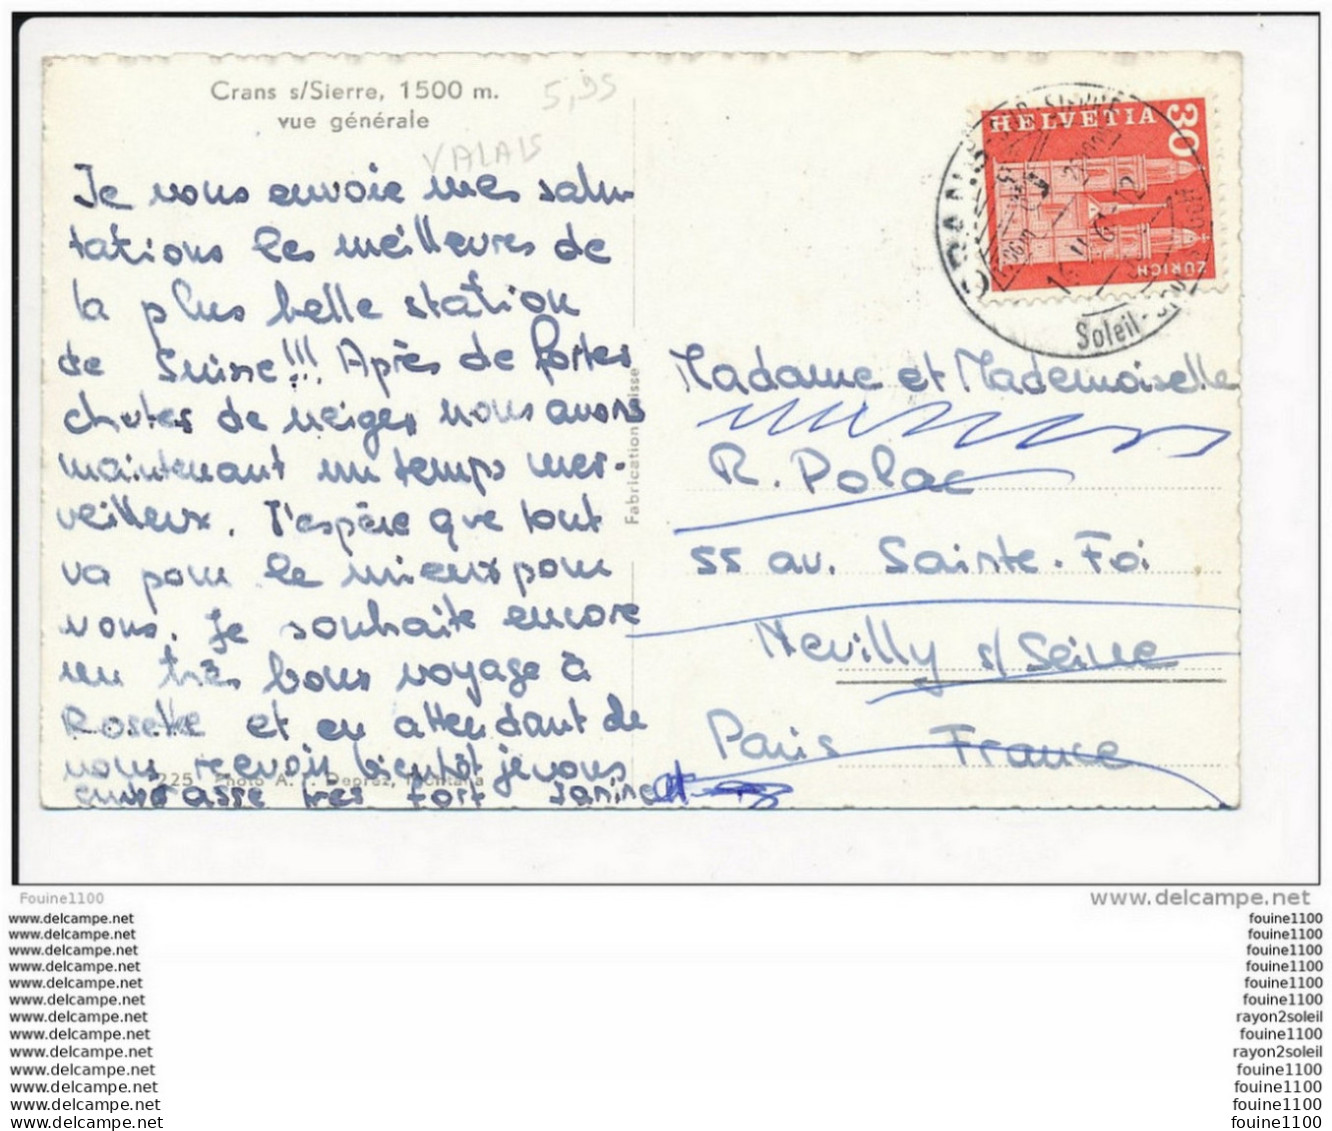 Crans s/Sierre, 1500 m.
vue générale
5,95
VALAIS
Je vous envoie mes salu-
tations les meilleures de
la plus belle station
de Suisse!!! Après de fortes
chutes de neiges nous avons
maintenant un temps mer-
veilleux. J'espère que tout
va pour le mieux pour
vous. Je souhaite encore
un très bons voyage à
Roselle et en attendant de
vous revoir bientôt je vous
embrasse très fort Janine
225 Photo A. P. Deprez, Montana
Fabrication suisse
HELVETIA
30
ZÜRICH
CRANS SUR SIERRE
Soleil
Madame et Mademoiselle
R. Polac
55 av. Sainte-Foi
Neuilly s/Seine
Paris France
Fouine1100
www.delcampe.net
www.delcampe.net
www.delcampe.net
www.delcampe.net
www.delcampe.net
www.delcampe.net
www.delcampe.net
www.delcampe.net
www.delcampe.net
www.delcampe.net
www.delcampe.net
www.delcampe.net
www.delcampe.net
www.delcampe.net
fouine1100
fouine1100
fouine1100
fouine1100
fouine1100
fouine1100
rayon2soleil
fouine1100
rayon2soleil
fouine1100
fouine1100
fouine1100
fouine1100